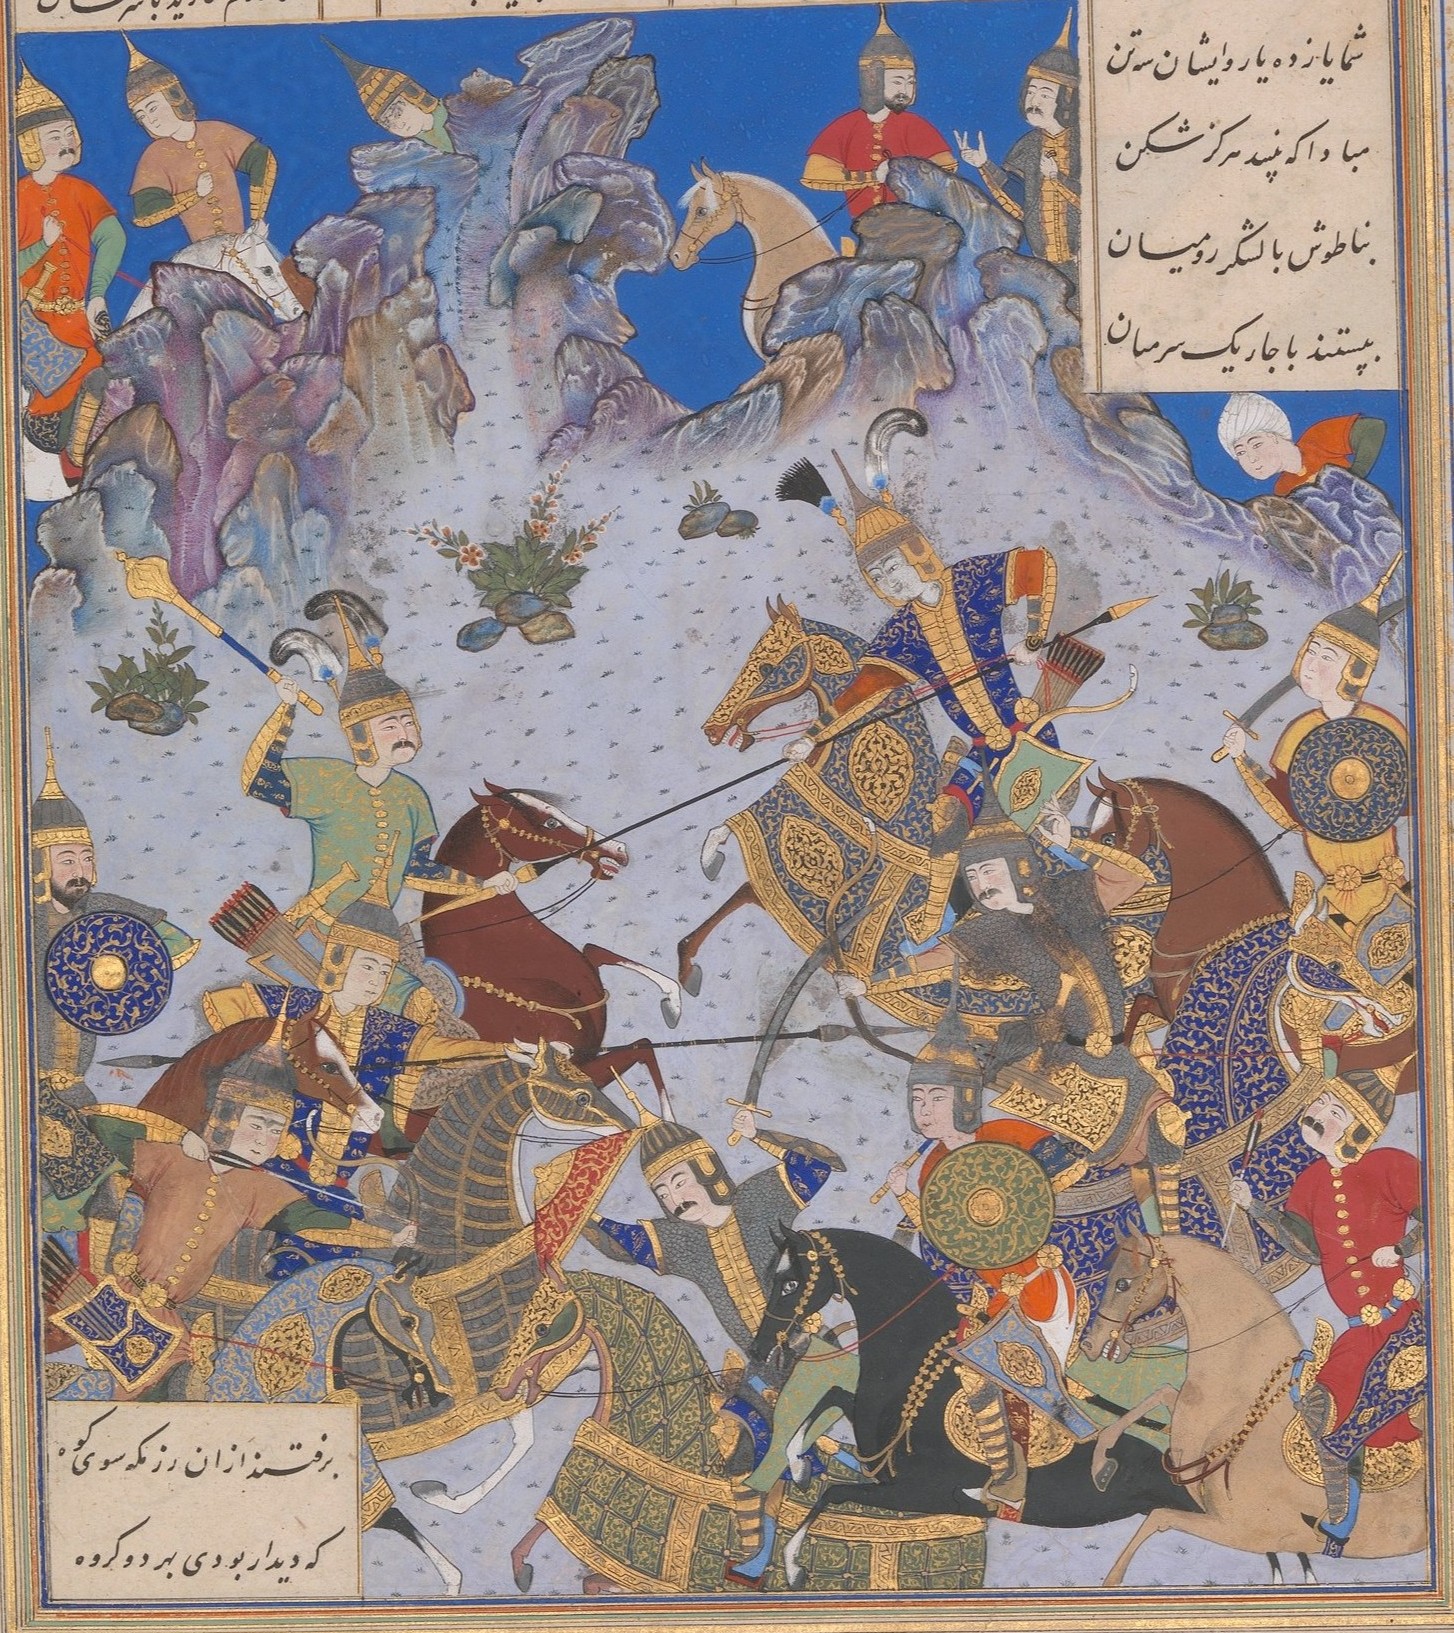 شما یازده یار و ایشان سه تن
مبادا که بیند هرگز شکن
نیاطوش با لشکر رومیان
ببستند با جاریک سر میان
برفتند ازان رزمگه سوی کوه
که دیدار بودی بهر دو گروه